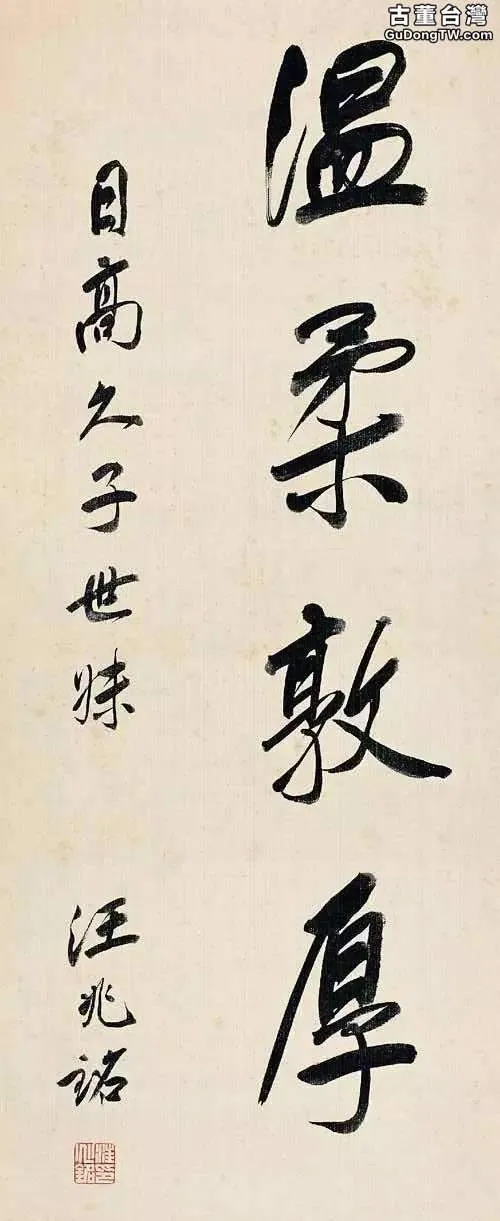 古董台灣
GuDongTW.com
温柔敦厚
日高久子世妹
汪兆銘